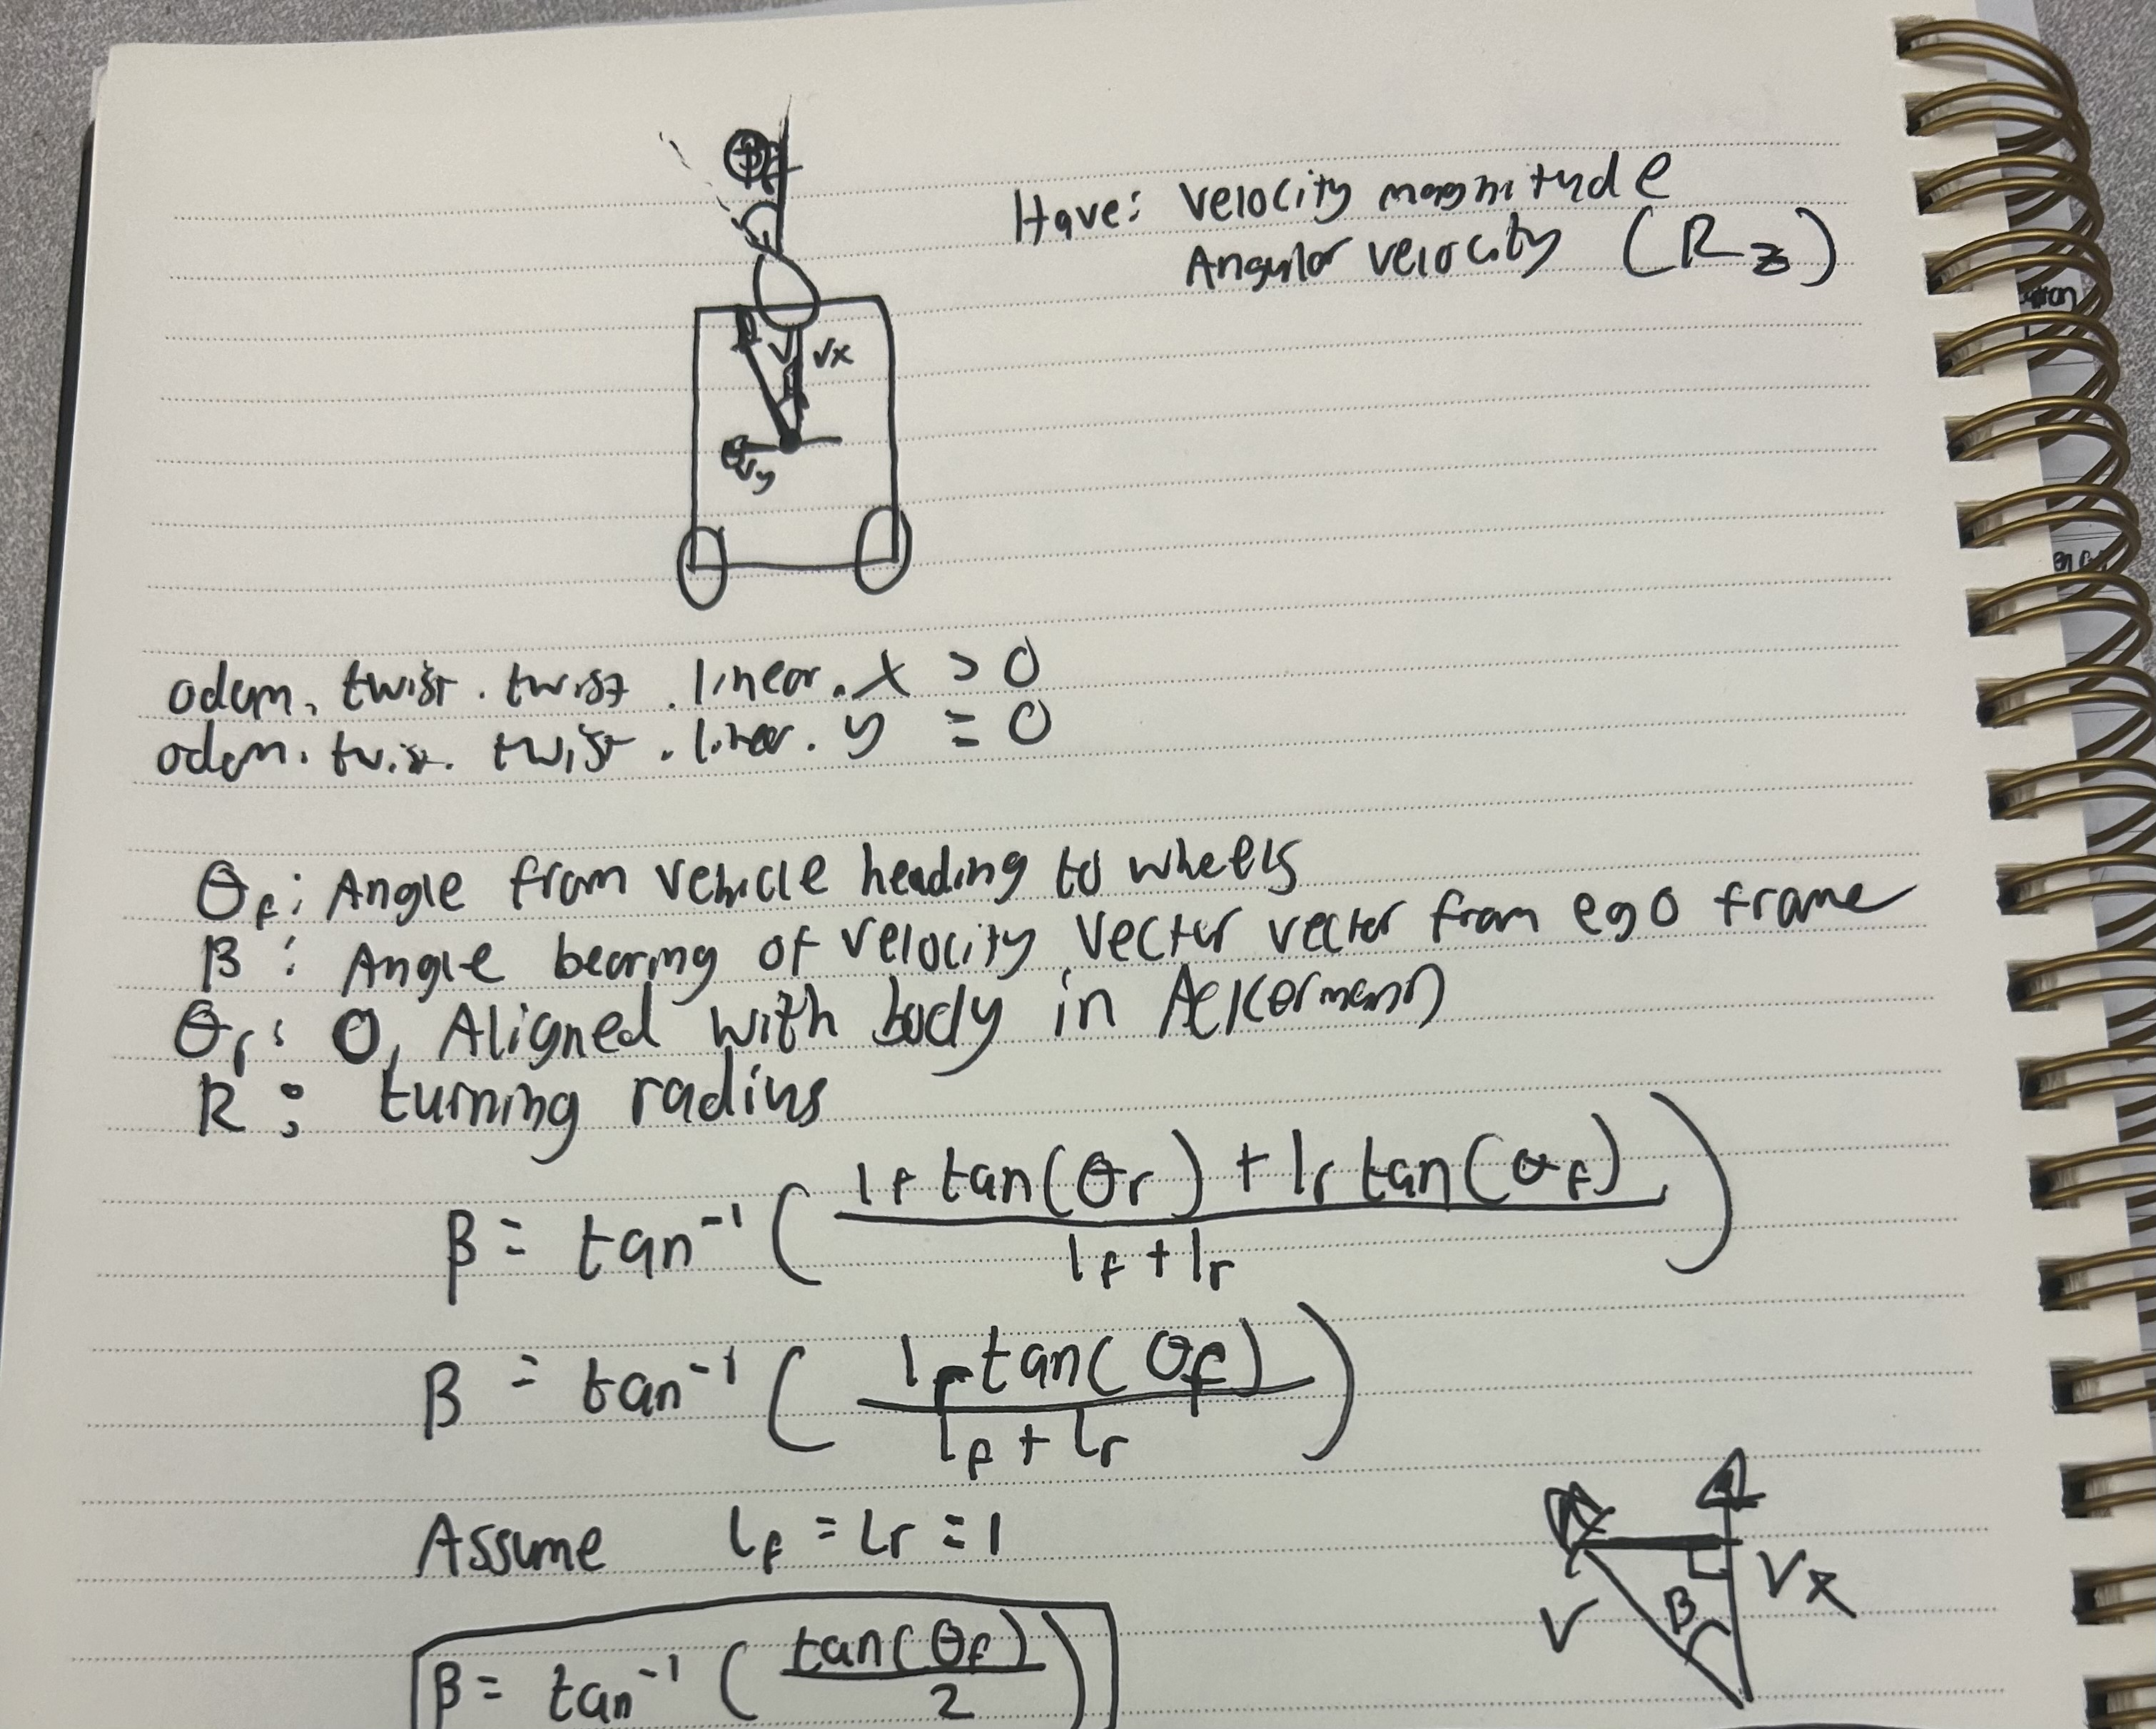 θf
Have: Velocity magnitude
Angular velocity (Rz)
V Vx
Vy
odom. twist. twist. linear. x > 0
odom. twis. twist. linear. y = 0
θf: Angle from vehicle heading to wheels
β: Angle bearing of velocity vector vector from ego frame
θr: 0, Aligned with body in Ackermann
R: turning radius
β = tan⁻¹ ( (lf tan(θr) + lr tan(θf)) / (lf + lr) )
β = tan⁻¹ ( (lr tan(θf)) / (lf + lr) )
Assume lf = lr = 1
V β Vx
β = tan⁻¹ ( tan(θf) / 2 )